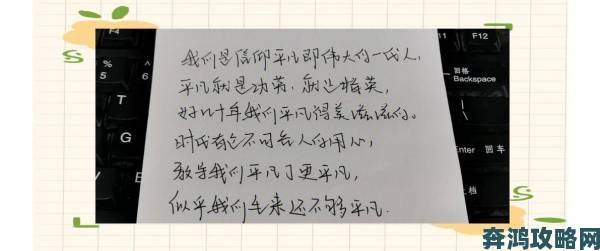 我们是信仰平凡即伟大的一代人,
平凡就是功英,就是精英,
好几十年我们平凡得美滋滋的。
时代有它不可告人的用心,
教导我们平凡了更平凡,
似乎我们生来还不够平凡.
F4
F11
F12
%
5
6
T
G
B
回格
Backspace
Enter 回车
上档
奔鸿攻略网